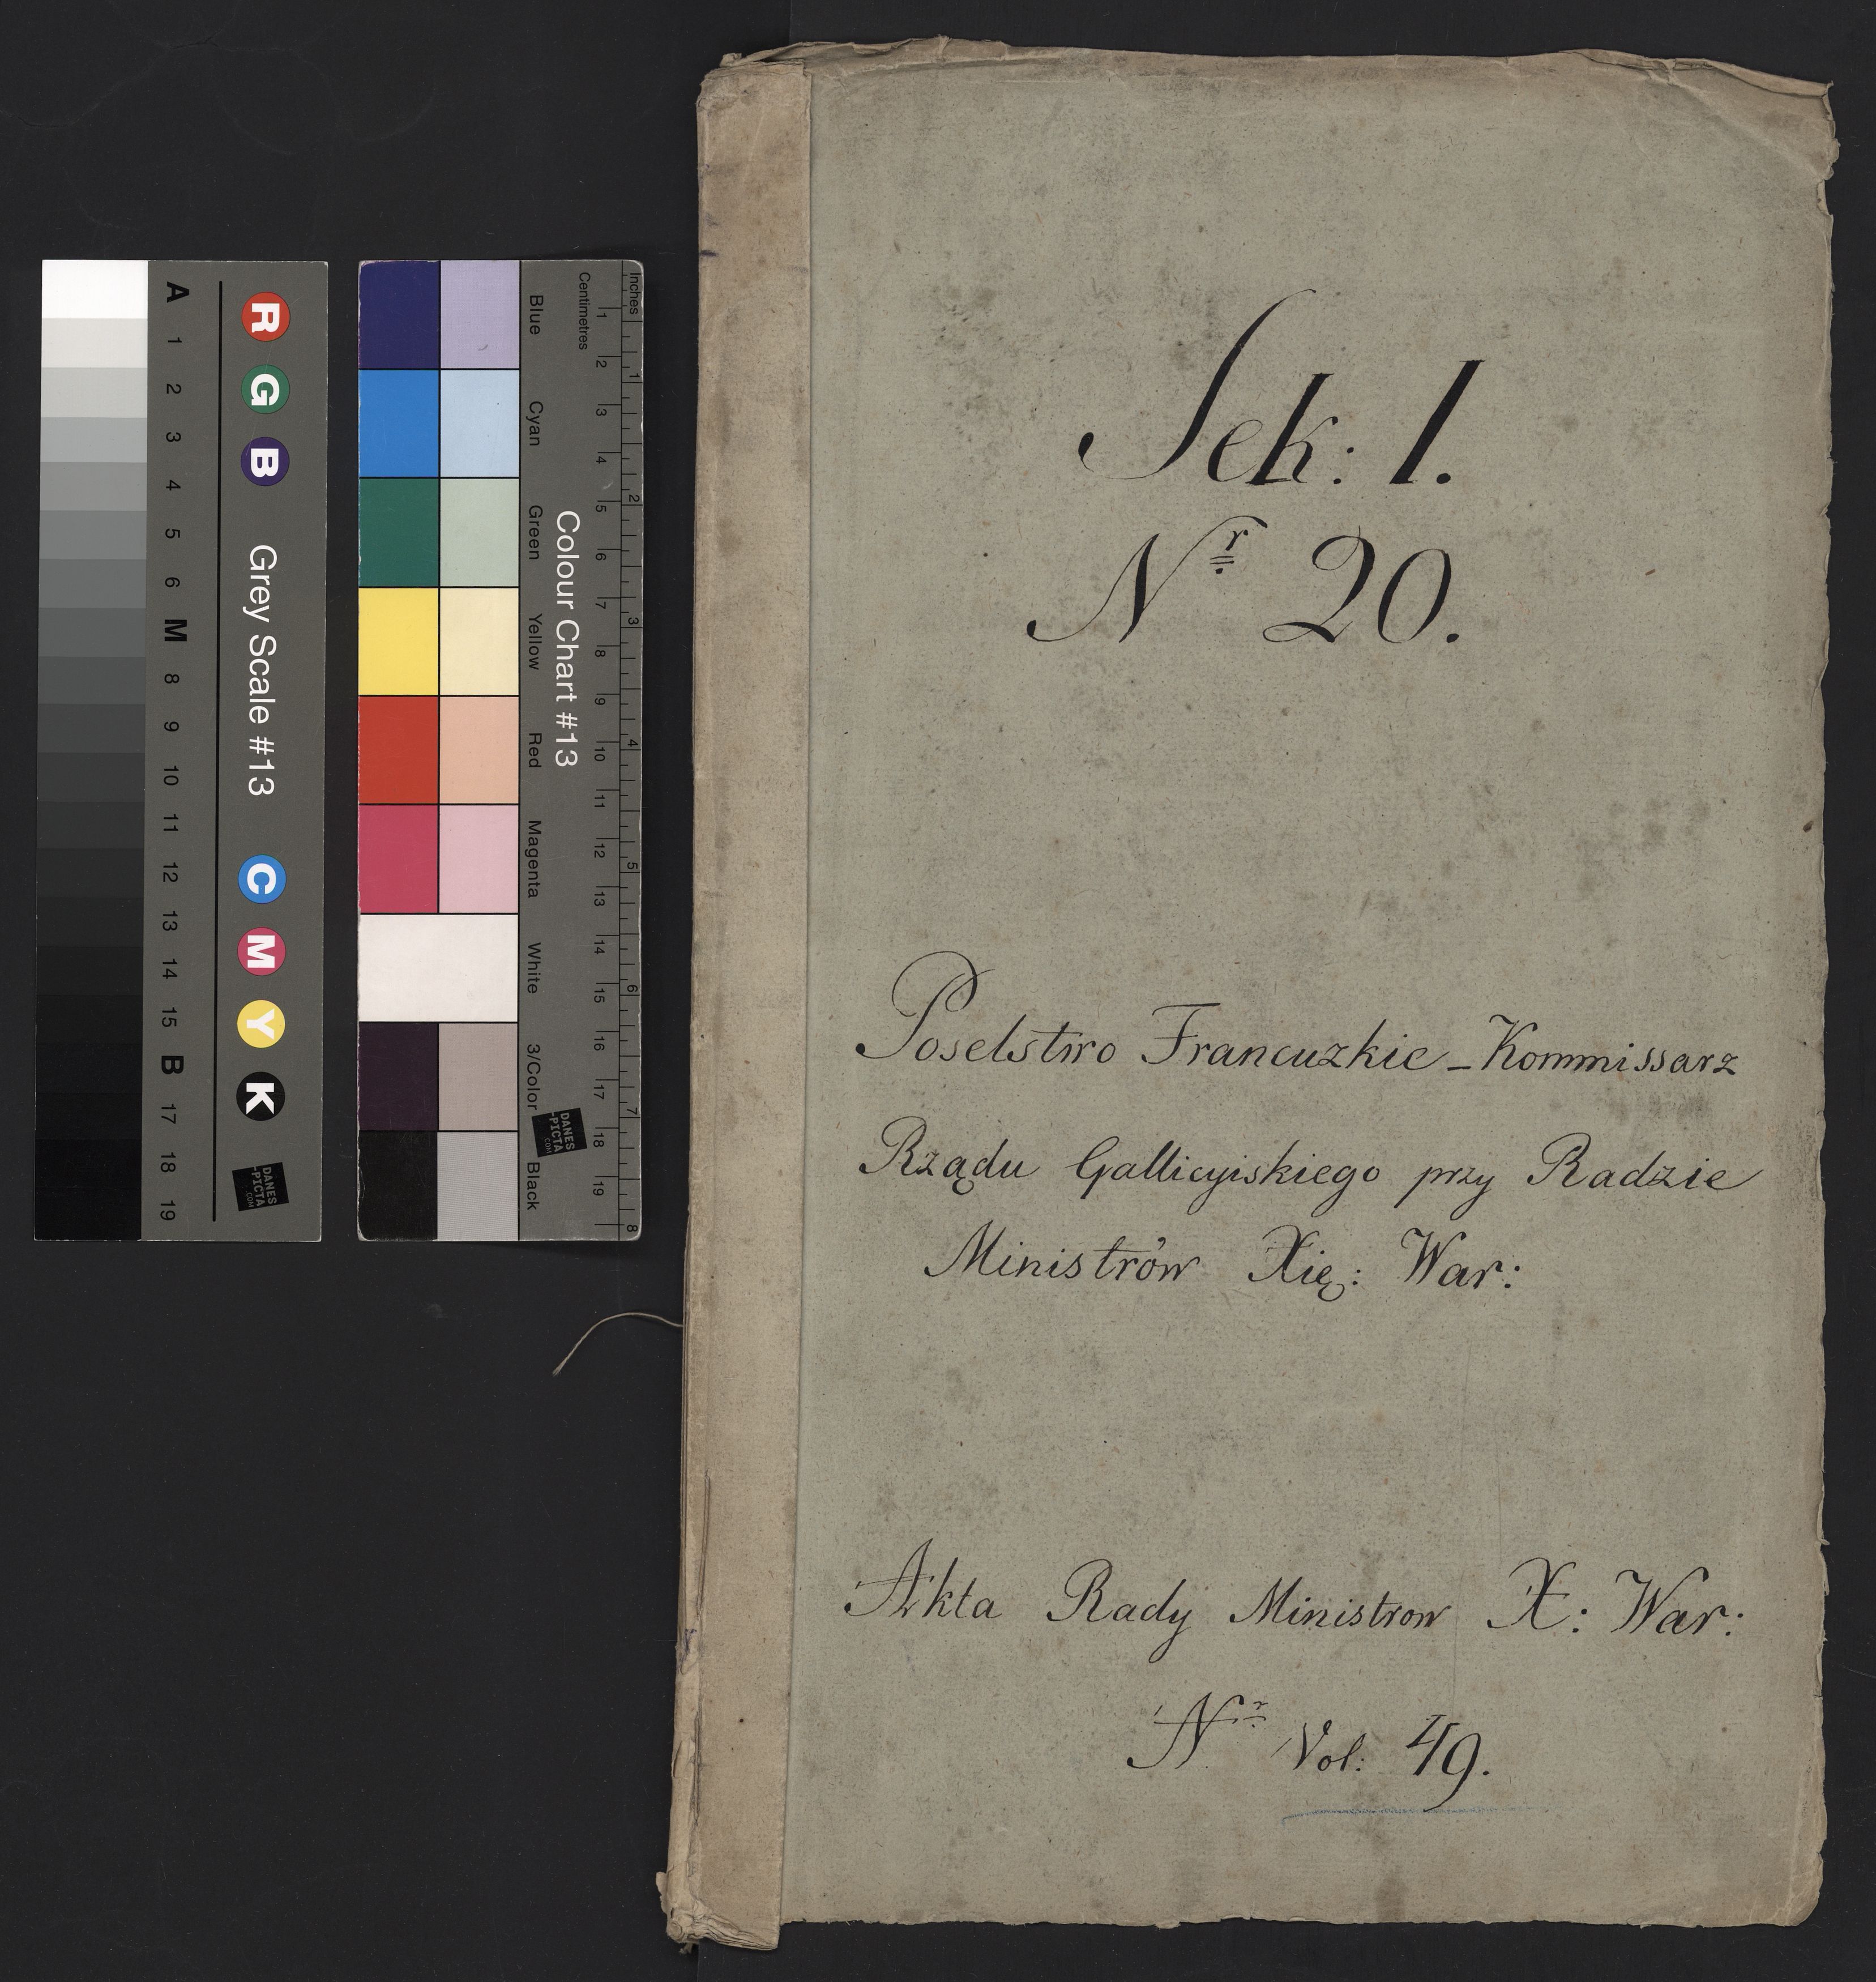 Sek: 1.
Nr 20.
Poselstwo Francuzkie – Kommissarz
Rządu Gallicyiskiego przy Radzie
Ministrów Xię: War:
Akta Rady Ministrow X: War:
Nr Vol: 49.
A 1 2 3 4 5 6 M 8 9 10 11 12 13 14 15 B 17 18 19
R G B Grey Scale #13 C M Y K
DANES
-PICTA
.COM
Blue Cyan Green Yellow Red Magenta White 3/Color Black
Colour Chart #13
DANES
-PICTA
.COM
Centimetres 1 2 3 4 5 6 7 8 9 10 11 12 13 14 15 16 17 18 19
Inches 1 2 3 4 5 6 7 8